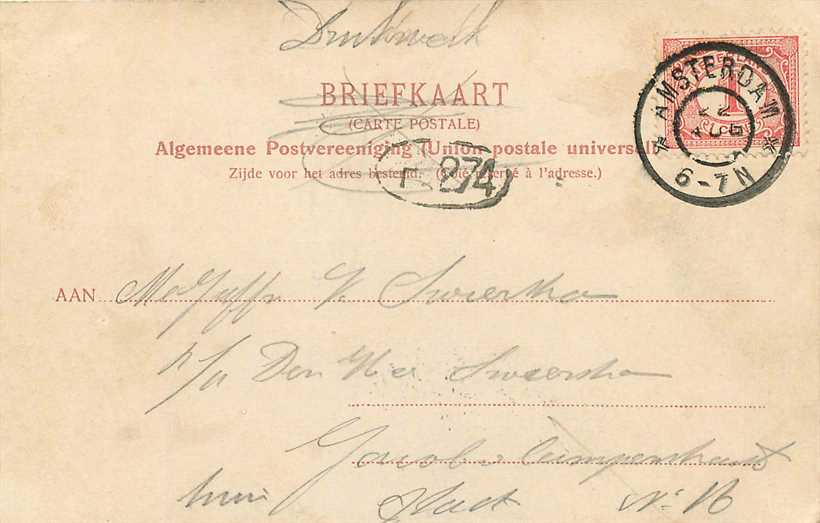 Drukwerk
BRIEFKAART
(CARTE POSTALE)
Algemeene Postvereeniging (Union postale universelle
Zijde voor het adres bestemd. (Côté réservé à l'adresse.)
AMSTERDAM
22
AUG
6-7N
1
274
AAN MeJuffr Swierstra
p/a Den Heer Swierstra
Jacob v Campenstraat
No 16